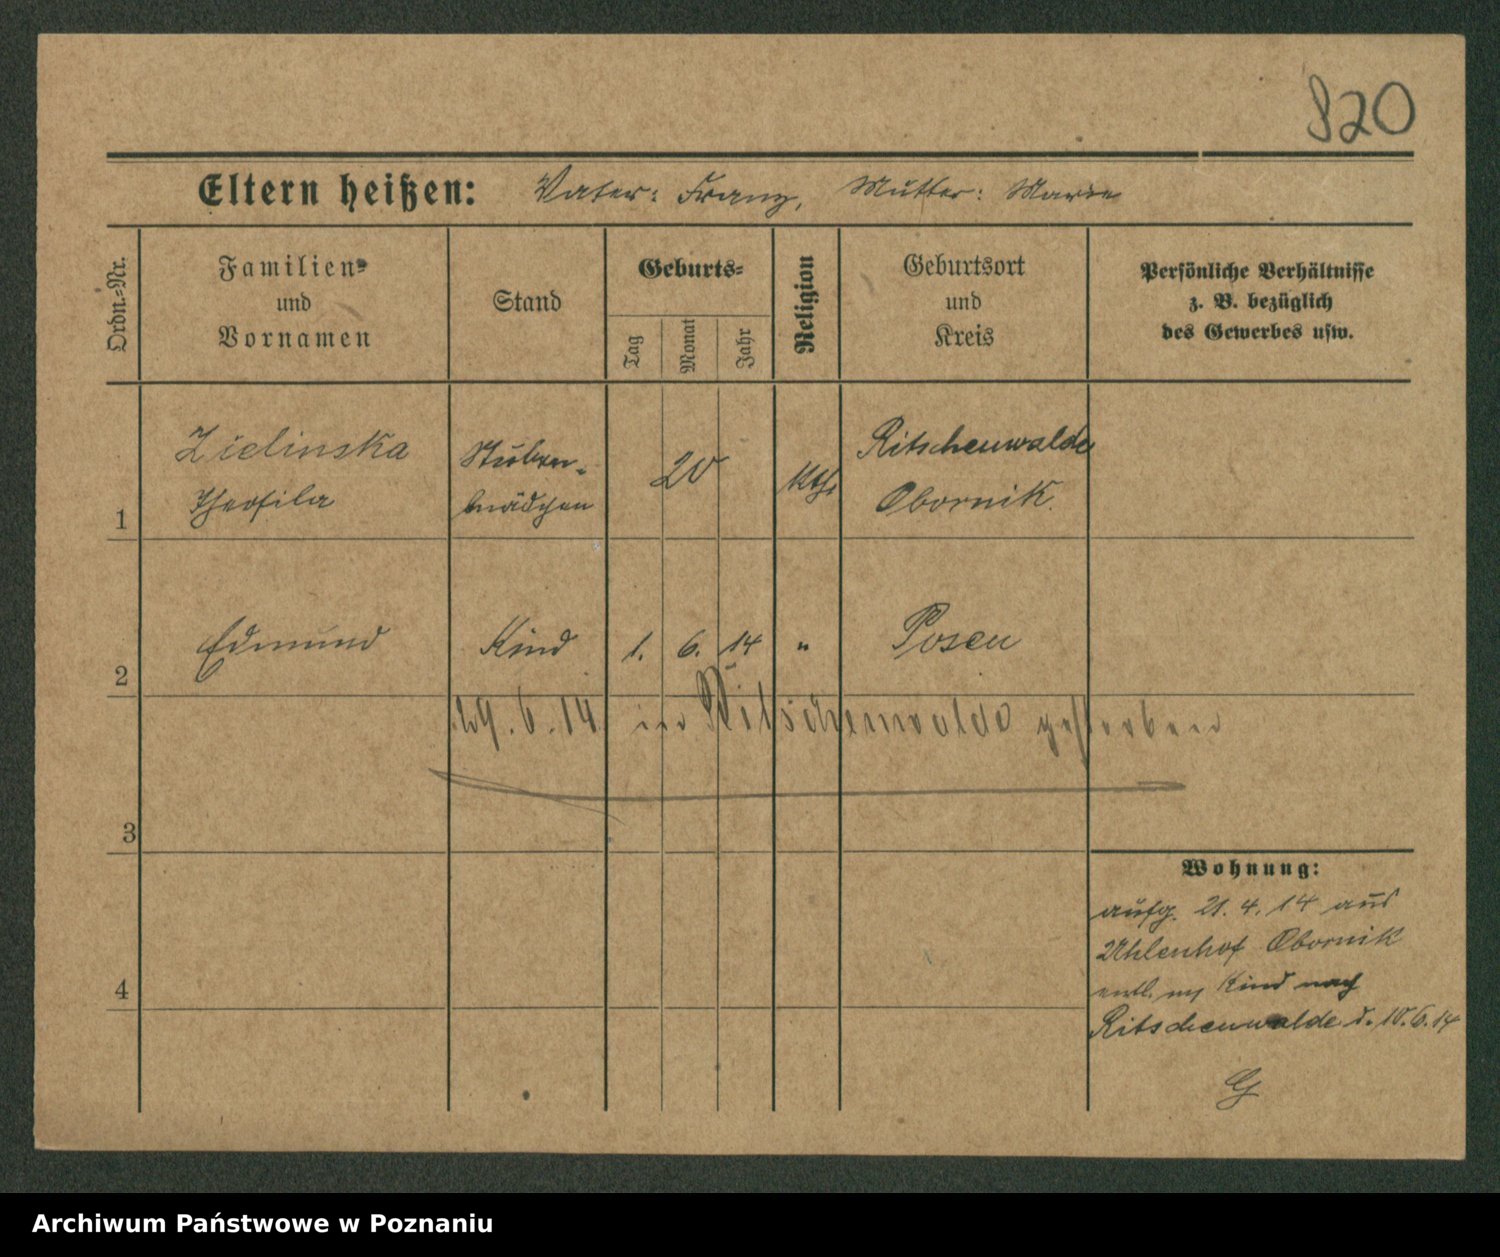 820
Eltern heißen: Vater: Franz, Mutter: Marie
Ordn.=Nr.
Familien=
und
Vornamen
Stand
Geburts=
Tag
Monat
Jahr
Religion
Geburtsort
und
Kreis
Persönliche Verhältnisse
z. B. bezüglich
des Gewerbes usw.
1
Zielinska
Theofila
Stuben-
mädchen
20
kth.
Ritschenwalde
Obornik.
2
Edmund
Kind
1. 6. 14
"
Posen
29. 6. 14 in Ritschenwalde gestorben
3
4
Wohnung:
aufg. 21. 4. 14 aus
Uhlenhof Obornik
entl. m. Kind nach
Ritschenwalde d. 10. 6. 14
Archiwum Państwowe w Poznaniu